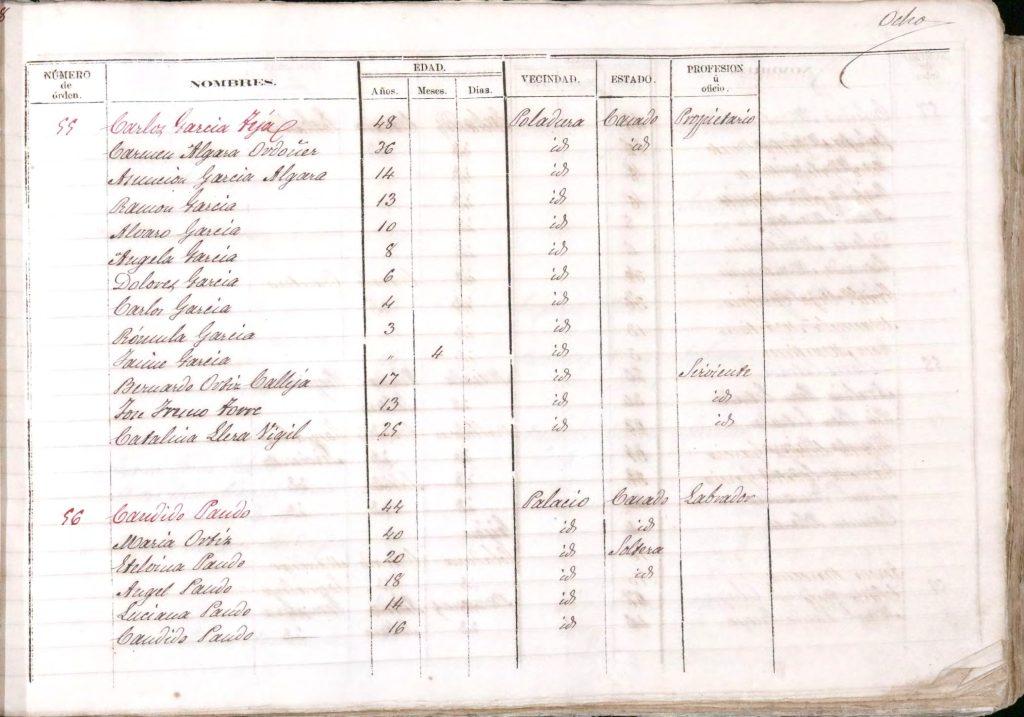 8
Ocho
NÚMERO de órden. NOMBRES. EDAD. Años. Meses. Dias. VECINDAD. ESTADO. PROFESION ú oficio.
55 Carlos Garcia 48 Poladura Casado Propietario
Carmen Algara Ordoñer 36 id id
Asuncion Garcia Algara 14 id
Ramon Garcia 13 id
Alvaro Garcia 10 id
Angela Garcia 8 id
Dolores Garcia 6 id
Carlos Garcia 4 id
Rómula Garcia 3 id
Jaime Garcia " 4 id
Bernardo Ortiz Calleja 17 id Sirviente
Jose Fresno Torre 13 id id
Catalina Llera Vigil 25 id id
56 Candido Pando 44 Palacio Casado Labrador
Maria Ortiz 40 id id
Etelvina Pando 20 id Soltera
Angel Pando 18 id id
Luciana Pando 14 id
Candido Pando 16 id